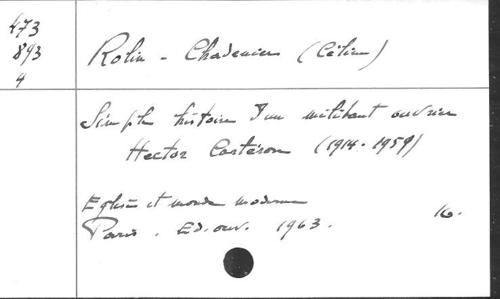 473
893
4
Rolin - Chadenier (Céline)
Simple histoire d'un militant ouvrier
Hector Castéron (1914-1959)
Eglise et monde moderne
Paris. Ed. ouv. 1963. 16.